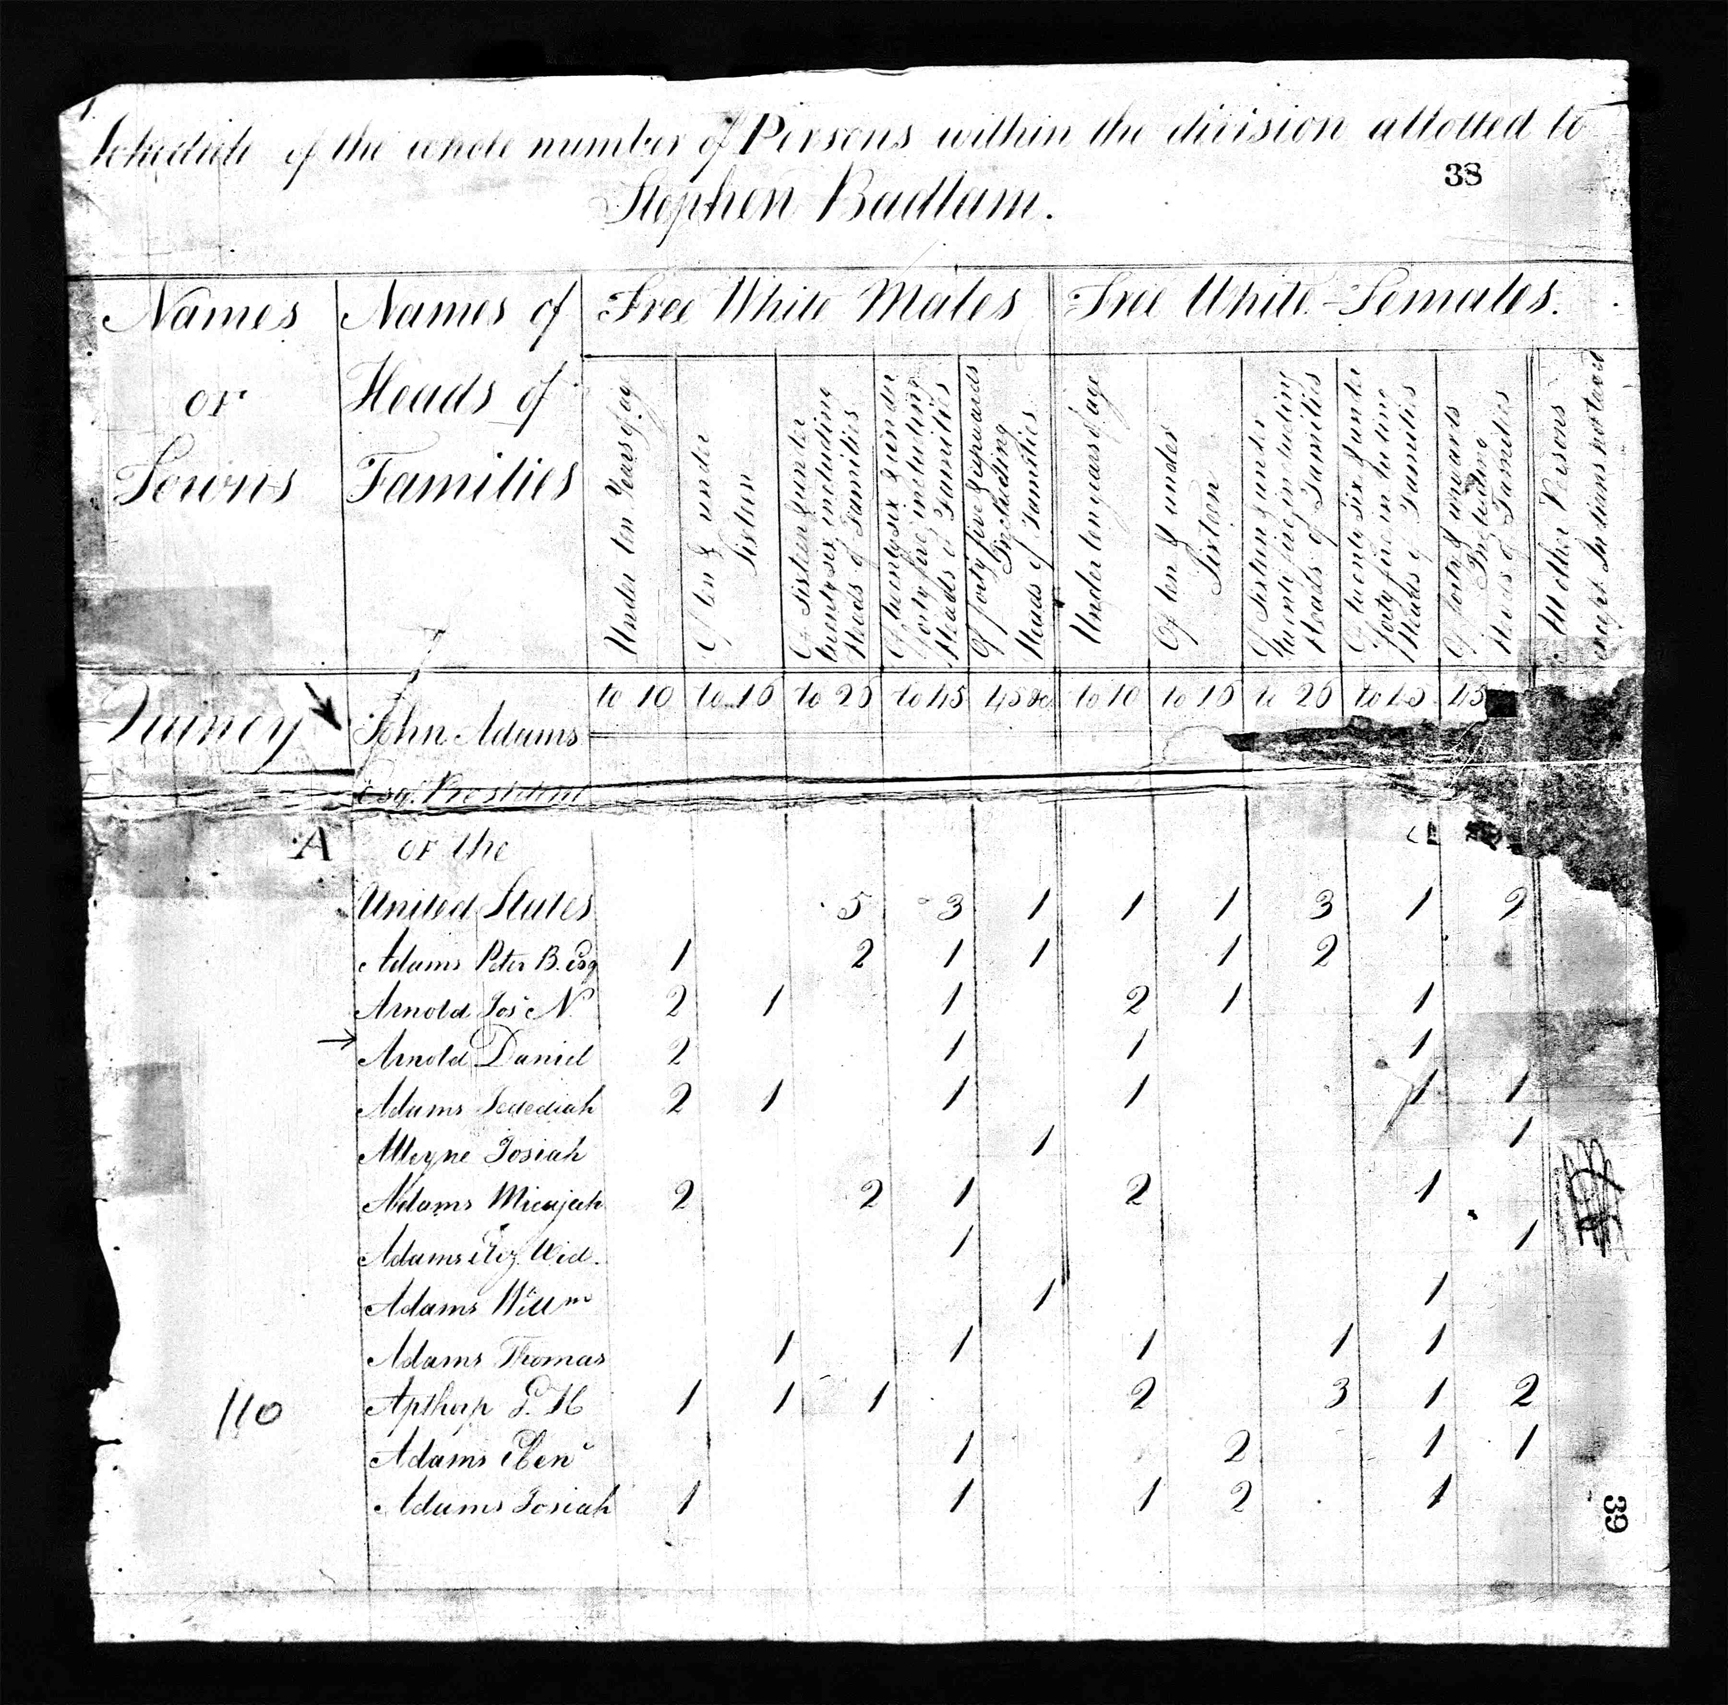 Schedule of the whole number of Persons within the division allotted to
38
Stephen Badlam.
Names or Towns
Names of Heads of Families
Free White Males
Free White Females.
Under ten Years of age
Of ten & under Sixteen
Of Sixteen & under twenty six including Heads of Families
Of twenty six & under forty five including Heads of Families
Of forty five & upwards Including Heads of Families
Under ten years of age
Of ten & under Sixteen
Of Sixteen & under twenty six including Heads of Families
Of twenty six & under forty five including Heads of Families
Of forty & upwards Including Heads of Families
All other Persons except Indians not taxed
to 10 to 16 to 26 to 45 45 &c to 10 to 16 to 26 to 45 45
Quincy John Adams
Esqr. President
A of the
United States 5 3 1 1 1 3 1 2
Adams Peter B. Esq 1 2 1 1 1 2
Arnold Jos N. 2 1 1 2 1 1
Arnold Daniel 2 1 1 1
Adams Jedediah 2 1 1 1 1 1
Alleyne Josiah 1 1
Adams Micajah 2 2 1 2 1
Adams Eliz. Wid. 1 1
Adams Willm 1 1
Adams Thomas 1 1 1 1 1
110 Apthorp G. H 1 1 1 2 3 1 2
Adams Ebenr 1 2 1 1
Adams Josiah 1 1 1 2 1
39